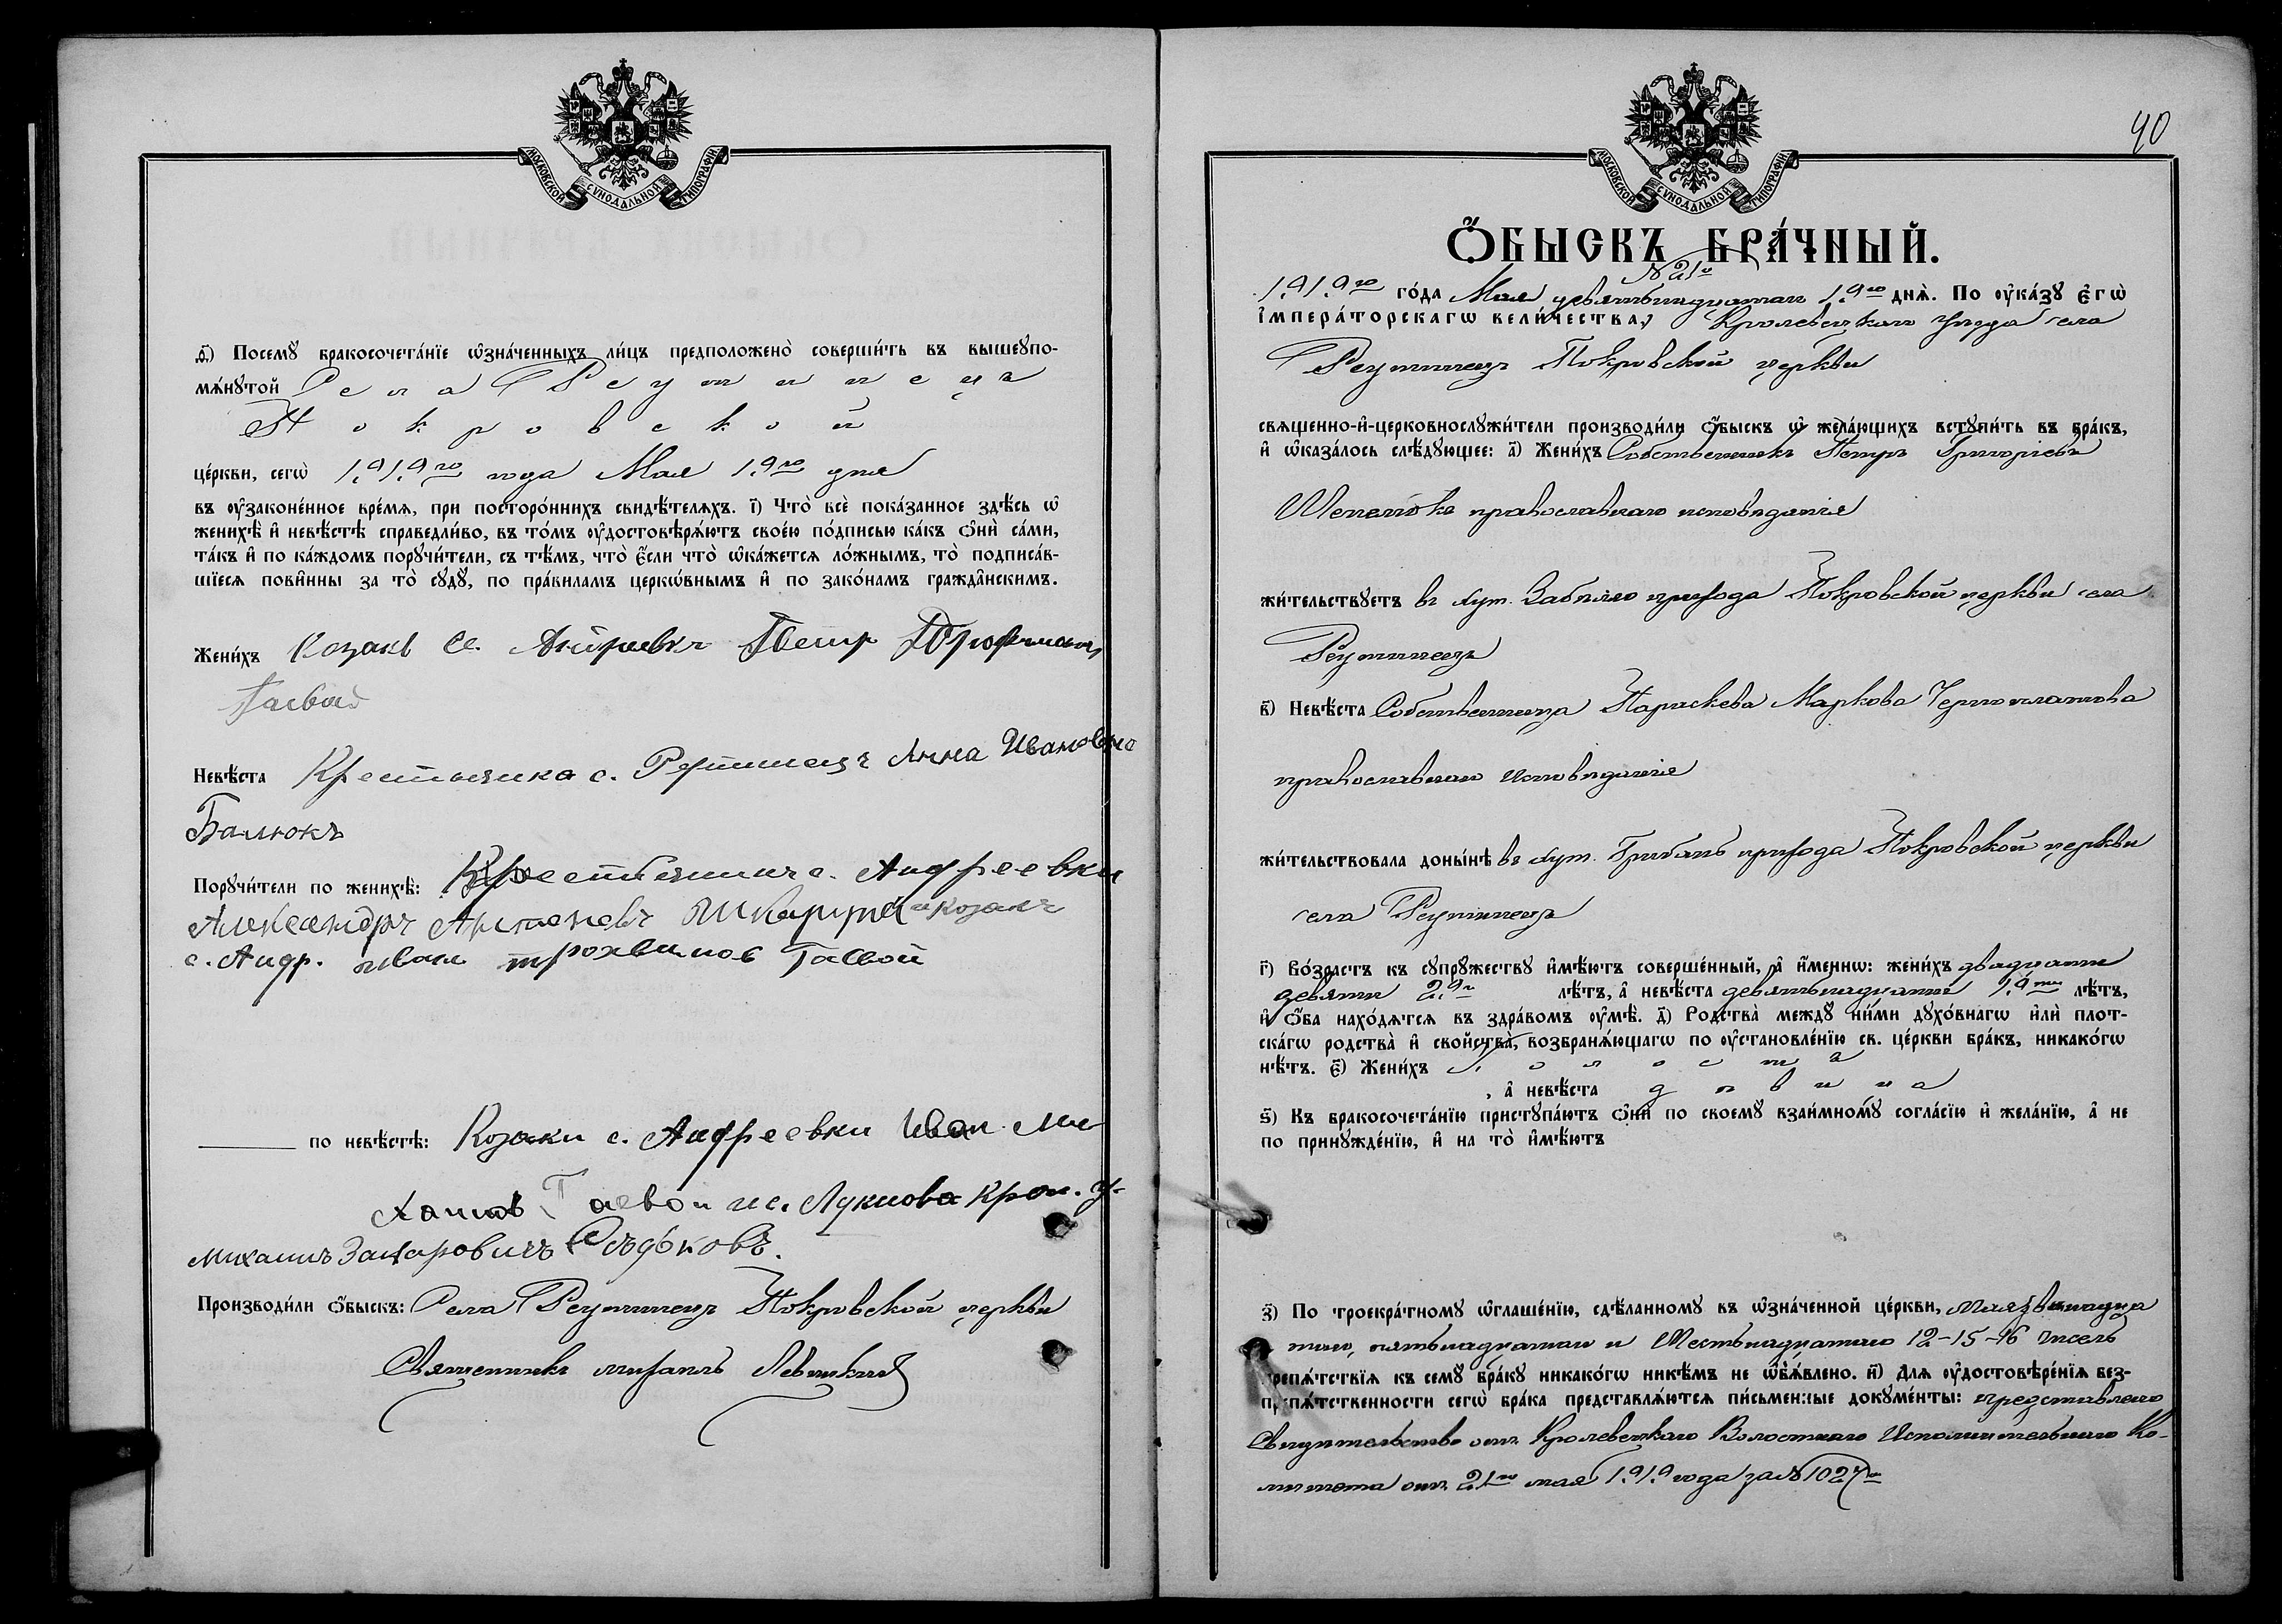 МОСКОВСКОЙ СѴНОДАЛЬНОЙ ТИПОГРАФІИ
ѳ҃) Посемꙋ бракосочета́нїе ѡ҆зна́ченныхъ ли́цъ предположено̀ соверши́ть въ вышеꙋпо-
мѧ́нꙋтой Села Реутинеца
Покровской
це́ркви, сегѡ̀ 1919го года Мая 19го дня
въ ᲂу҆законе́нное вре́мѧ, при посторо́ннихъ свидѣ́телѧхъ. і҃) Что̀ всѐ пока́занное здѣ́сь ѡ҆
женихѣ̀ и҆ невѣ́стѣ справедли́во, въ то́мъ ᲂу҆достовѣрѧ́ютъ свое́ю по́дписью ка́къ ѻ҆нѝ са́ми,
та́къ и҆ по ка́ждомъ порꙋчи́тели, съ тѣ́мъ, что̀ є҆́сли что̀ ѡ҆ка́жетсѧ ло́жнымъ, то̀ подписа́в-
шїесѧ пови́нны за то̀ сꙋдꙋ̀, по пра́виламъ церко́внымъ и҆ по зако́намъ гражда́нскимъ.
Жени́хъ Козакъ с. Андреевки Петр Трофимовъ
Гаевой
Невѣ́ста Крестьянка с. Реутинецъ Анна Ивановна
Балюкъ
Порꙋчи́тели по женихѣ̀: Крестьянинъ с. Андреевки
Александръ Антоновъ и козакъ
с. Андр. иван трохвимов Гаевой
по невѣ́стѣ: Козаки с. Андреевки Иван Ми-
хаилов Гаевой и с. Лукнова Крол. у.
Михаилъ Захаровичъ Сѣдьковъ.
Производи́ли ѻ҆́быскъ: Села Реутинецъ Покровской церкви
Священникъ Михаилъ Левицкий
40
МОСКОВСКОЙ СѴНОДАЛЬНОЙ ТИПОГРАФІИ
Ѻ҆́БЫСКЪ БРА́ЧНЫЙ.
№ 21й
1919го го́да Мая девятьнадцатаго 19го днѧ̀. По ᲂу҆ка́зꙋ є҆гѡ̀
і҆мпера́торскагѡ вели́чества, Кролевецкаго уезда села
Реутинецъ Покровской церкви
свѧщенно-и҆-церковнослꙋжи́тели производи́ли ѻ҆́быскъ ѡ҆ жела́ющихъ встꙋпи́ть въ бра́къ,
и҆ ѡ҆каза́лось слѣ́дꙋющее: а҃) Жени́хъ Собственникъ Петръ Григорьевъ
Шепетько православнаго исповѣданія
жи́тельствꙋетъ въ хут. прихода Покровской церкви села
Реутинецъ
в҃) Невѣ́ста Собственница Параскева Маркова Черноплатова
православнаго исповѣданія
жи́тельствовала доны́нѣ въ хут. Грибань прихода Покровской церкви
села Реутинецъ
г҃) Во́зрастъ къ сꙋпрꙋ́жествꙋ и҆мѣ́ютъ соверше́нный, а҆ и҆́меннѡ: жени́хъ двадцати
девяти 29и лѣ́тъ, а҆ невѣ́ста девятьнадцати 19ти лѣ́тъ,
и҆ ѻ҆́ба нахо́дѧтсѧ въ здра́вомъ ᲂу҆мѣ̀. д҃) Родства̀ междꙋ̀ ни́ми дꙋхо́внагѡ и҆лѝ плот-
ска́гѡ родства̀ и҆ свойства̀, возбранѧ́ющагѡ по ᲂу҆становле́нїю св. це́ркви бра́къ, никако́гѡ
нѣ́тъ. є҃) Жени́хъ холоста
, а҆ невѣ́ста дѣвица
ѕ҃) Къ бракосочета́нїю пристꙋпа́ютъ ѻ҆нѝ по своемꙋ̀ взаи́мномꙋ согла́сїю и҆ жела́нїю, а҆ не
по принꙋжде́нїю, и҆ на то̀ и҆мѣ́ютъ
з҃) По троекра́тномꙋ ѡ҆глаше́нїю, сдѣ́ланномꙋ въ ѡ҆зна́ченной це́ркви, Мая двѣнадца
таго, пятьнадцатаго и Шестьнадцатаго 12-15-16 чиселъ
препѧ́тствїѧ къ семꙋ̀ бра́кꙋ никако́гѡ никѣ́мъ не ѡ҆бъѧ́влено. и҃) Длѧ ᲂу҆достовѣре́нїѧ без-
препѧ́тственности сегѡ̀ бра́ка представлѧ́ютсѧ пи́сьменные докꙋме́нты: представлено
Свидѣтельство отъ Кролевецкаго Волостнаго Исполнительнаго Ко-
митета отъ 21го мая 1919 года за №